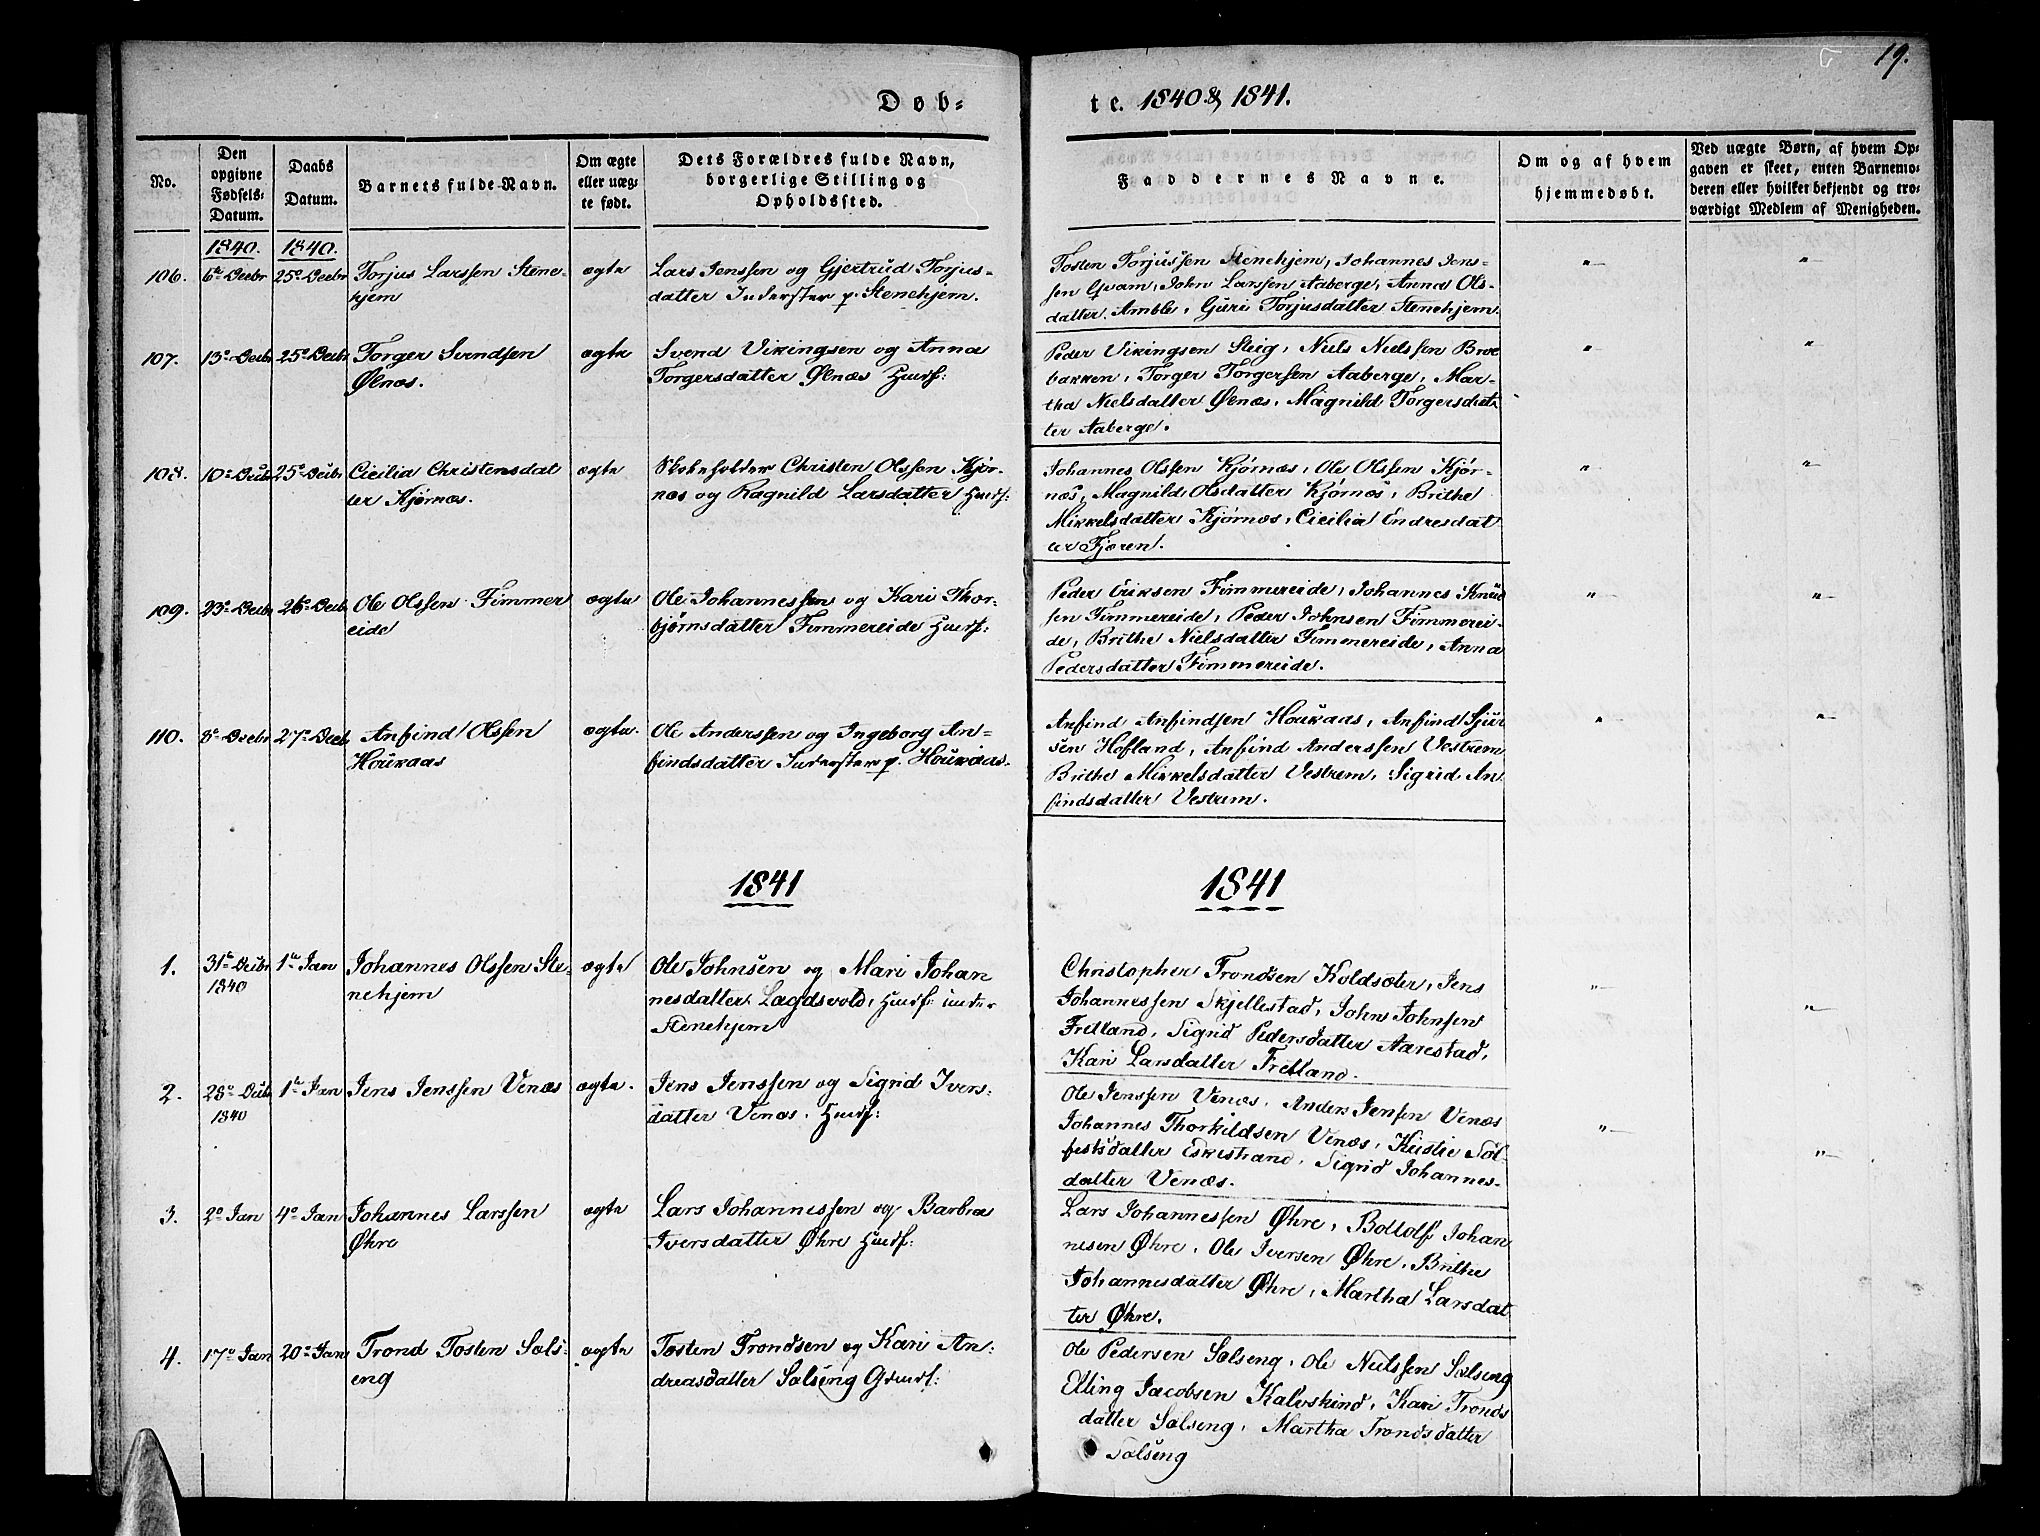 19.
Døb-
te. 1840 & 1841.
No.
Den opgivne Fødsels-Datum.
Daabs Datum.
Barnets fulde Navn.
Om ægte eller uægte født.
Dets Forældres fulde Navn, borgerlige Stilling og Opholdssted.
Faddernes Navne.
Om og af hvem hjemmedøbt.
Ved uægte Børn, af hvem Op-
gaven er skeet, enten Barnemo-
deren eller hvilket bekjendt og tro-
værdigt Medlem af Menigheden.
1840. 1840.
106. 6te Decbr 25de Decbr Torjus Larssen Stene-
hjem
ægte
Lars Jenssen og Gjertrud Torjus-
datter Inderster p. Stenehjem.
Tosten Torjussen Stenehjem, Johannes Jens-
sen Qvam, John Larssen Aaberge, Anna Ols-
datter Amble, Guri Torjusdatter Stenehjem.
107. 13de Decbr 25de Decbr Torger Svendsen
Ølnæs.
ægte
Svend Vikingsen og Anna
Torgersdatter Ølnæs Huusf:
Peder Vikingsen Steig, Niels Nielssen Broe
bakken, Torger Torgersen Aaberge, Mar-
tha Nielsdatter Ølnæs, Magnild Torgersdat-
ter Aaberge.
108. 10de Decbr 25de Decbr Cicilia Christensdat
ter Kjørnæs.
ægte
Skoleholder Christen Olssen Kjør-
næs og Ragnild Larsdatter Huusf:
Johannes Olssen Kjørnæs, Ole Olssen Kjør-
næs, Magnild Olsdatter Kjørnæs, Brithe
Mikkelsdatter Kjørnæs, Cicilia Endresdat
ter Fjæren.
109. 23de Decbr 26de Decbr Ole Olssen Fimmer
eide
ægte
Ole Johannessen og Kari Thor-
bjørnsdatter Fimmereide Huusf:
Peder Eriksen Fimmereide, Johannes Knud
sen Fimmereide, Peder Johnsen Fimmerei-
de, Brithe Nielsdatter Fimmereide, Anna
Pedersdatter Fimmereide.
110. 8de Decbr 27de Decbr Anfind Olssen
Houkaas
ægte.
Ole Anderssen og Ingeborg An-
findsdatter Inderster p. Houkaas.
Anfind Anfindsen Houkaas, Anfind Sjur
sen Hofland, Anfind Anderssen Vestrem
Brithe Mikkelsdatter Vestrem, Sigrid An
findsdatter Vestrem.
1841
1841
1. 31te Decbr 1ste Jan Johannes Olssen Ste-
1840
nehjem
ægte
Ole Johnsen og Mari Johan
nesdatter Lagdsvold, Huusf: under
Stenehjem
Christopher Trondsen Koldsæter, Jens
Johannessen Skjellestad, John Johnsen
Fretland, Sigrid Pedersdatter Aarestad,
Kari Larsdatter Fretland.
2. 28de Decbr 1ste Jan Jens Jenssen Venæs
1840
ægte.
Jens Jenssen og Sigrid Ivers-
datter Venæs. Huusf:
Ole Jenssen Venæs, Anders Jensen Venæs
Johannes Thorkildsen Venæs, Kirstie Søl-
festsdatter Eskestrand, Sigrid Johannes-
datter Venæs.
3. 2de Jan 4de Jan Johannes Larssen
Øhre
ægte
Lars Johannessen og Barbra
Iversdatter Øhre Huusf:
Lars Johannessen Øhre, Bottolf Johan
nesen Øhre, Ole Iversen Øhre, Brithe
Johannesdatter Øhre, Martha Larsdat
ter Øhre.
4. 17de Jan 20de Jan Trond Tosten Sæls-
eng
ægte
Tosten Trondsen og Kari An-
dreasdatter Sælseng Gmdf:
Ole Pedersen Sælseng, Ole Nielssen Sælseng
Elling Jacobsen Kalvskind, Kari Tronds
datter Sælseng, Martha Trondsdatter
Sælseng